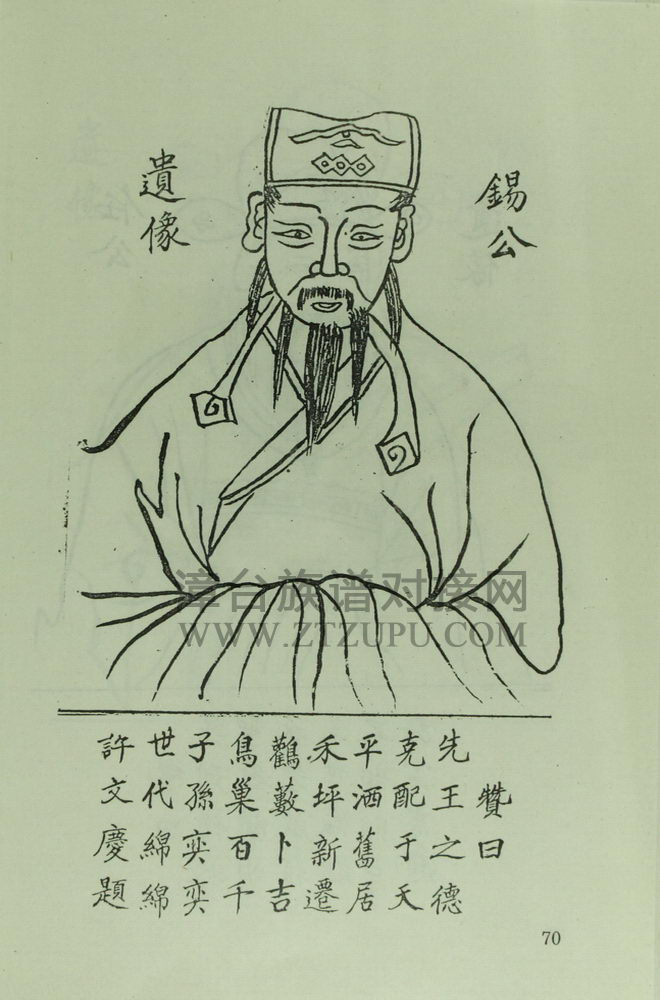 錫公
遺像
漳台族谱对接网
WWW.ZTZUPU.COM
贊曰
先王之德
克配于天
平洒舊居
禾坪新遷
鸛藪卜吉
鳥巢百千
子孫奕奕
世代綿綿
許文慶題
70